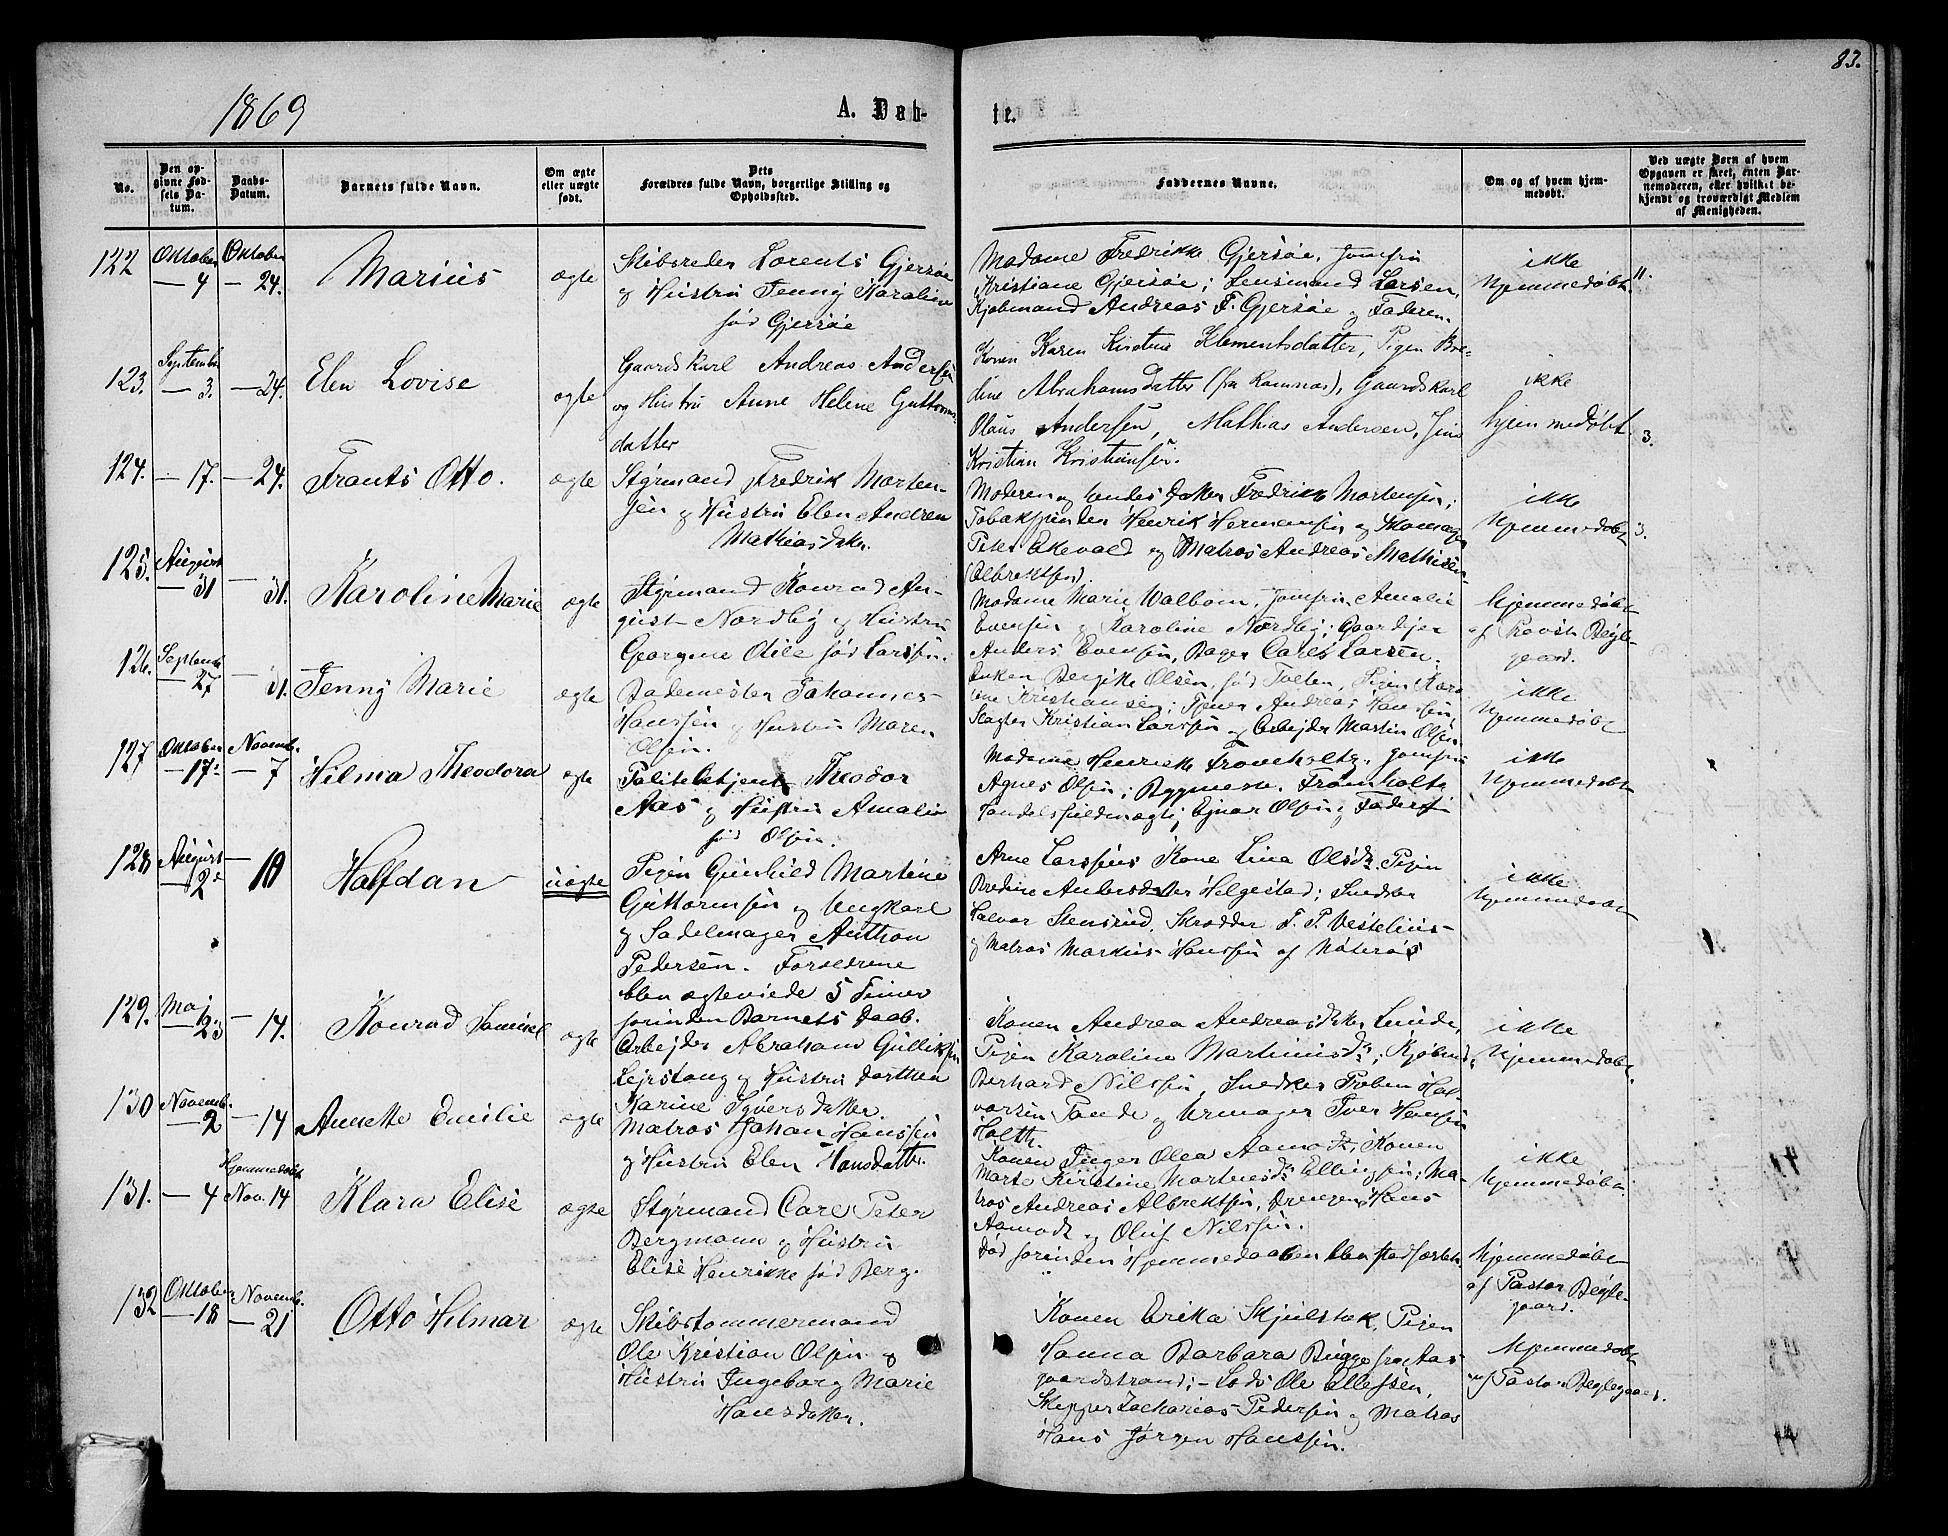 83.
1869
A. Døb-
te.
No.
Den op-
givne Fød-
sels Da-
tum.
Daabs-
Datum.
Barnets fulde Navn.
Om ægte
eller uægte
født.
Dets
Forældres fulde Navn, borgerlige Stilling og
Opholdssted.
Faddernes Navne.
Om og af hvem hjem-
medøbt.
Ved uægte Børn af hvem
Opgaven er skeet, enten Bar-
nemoderen, eller hvilket be-
kjendt og troværdigt Medlem
af Menigheden.
122
Oktober
— 4
Oktober
— 24.
Marius
ægte
Skibsreder Lorents Gjersøe
og Hustru Jenny Karoline
født Gjersøe
Madame Fredrikke Gjersøe, Jomfru
Kristiane Gjersøe; Lensmand Larsen,
Kjøbmand Andreas F. Gjersøe og Faderen.
ikke
hjemmedøbt.
11.
123.
September
— 3.
— 24.
Elen Lovise
ægte
Gaardskarl Andreas Andersen
og Hustru Anne Helene Guttorms-
datter
Konen Karen Kirstine Klementsdatter, Pigen Bre-
dine Abrahamsdatter (fra Ramnæs), Gaardskarl
Olaus Andersen, Mathias Andersen, Jens
Kristian Kristiansen.
ikke
hjemmedøbt
3.
124.
— 17.
— 24.
Frants Otto.
ægte
Styrmand Fredrik Morten-
sen og Hustru Elen Andrea
Mathiasdatter.
Moderen og hendes Datter Fredrikke Mortensen;
Tobakspinder Henrik Hermansen og Skomager
Peter Ekevald og Matros Andreas Mathisen
(Albrektsen).
ikke
hjemmedøbt
3.
125.
August
— 31
— 31.
Karoline Marie
ægte
Styrmand Konrad Au-
gust Nordby og Hustru
Georgine Otile født Larsen.
Madame Marie Walbom, Jomfru Amalie
Evensen og Karoline Nordby; Gaardejer
Anders Evensen, Bager Carl Larsen.
hjemmedøbt
af Provst Bugge-
gaard.
126.
Septemb.
— 27
— 31.
Jenny Marie
ægte
Bademester Johannes
Hanssen og Hustru Maren
Olsen.
Enken Olsen, født Pigen Karo-
line Kristiansen; Tjener Andreas Hanssen,
Slagter Kristian Larssen og Arbejder Martin Olsen
ikke
hjemmedøbt
127
Oktober
— 17.
Novemb.
— 7
Hilma Theodora
ægte
Politibetjent Theodor
Aas og Hustru Amalie
født Olsen.
Madame Henriette Fromholtz, Jomfru
Agnes Olsen; Bygmester Fromholtz
Handelsfuldmægtig Ejnar Olsen og Faderen
ikke
hjemmedøbt
128
August
— 2
— 10
Halfdan
uægte
Pigen Gunhild Martine
Guttormsen og Ungkarl
og Sadelmager Anthon
Pedersen. Forældrene
blev ægteviede 5 Timer
forinden Barnets Daab.
Arne Larssens Kone Lina Olsdtr. Pigen
Bredine Andersdatter Helgestad; Snedker
Halvor Stensrud, Skrædder F. P. Vesselius
og Matros Markus Hanssen af Nøterø
ikke
hjemmedøbt
129.
Maj
— 23
— 14.
Konrad Samuel
ægte
Arbejder Abrahams Gulliksen
Lejrstang og Hustru Dorthea
Karine Syversdatter.
Konen Andrea Andreasdatter Linde,
Pigen Karoline Martinusdtr; Kjøbmd.
Berhard Nilssen, Snedker Preben Hal-
vorsen Tande og Urmager Iver Hansen
Holth.
ikke
hjemmedøbt.
130
Novemb.
— 2
— 14
Annette Emilie
ægte
Matros Johan Hanssen
og Hustru Elen Hansdatter.
Konen Inger Olea Aamodt, Konen
Marte Kirstine Martinsdtr Ellingsen; Ma-
tros Andreas Albrektsen, Drengen Hans
Aamodt og Oluf Nilssen.
ikke
hjemmedøbt.
131.
— 4
Hjemmedøbt
Nov. 14
Klara Elise
ægte
Styrmand Carl Peter
Bergmann og Hustru
Elise Henrikke født Berg.
Død forinden Hjemmedaaben blev stadfæstet.
hjemmedøbt
af Pastor Bugge-
gaard.
132
Oktober
— 18
Novemb.
— 21
Otto Hilmar
ægte
Skibstømmermand
Ole Kristian Olsen og
Hustru Ingeborg Marie
Hansdatter.
Konen Erika Skjelstak, Pigen
Hanna Barbara Bugge fra Aas-
gaardstrand; — Lods Ole Ellefsen,
Skipper Zacharias Pedersen og Matros
Hans Jørgen Hanssen.
hjemmedøbt
af Pastor